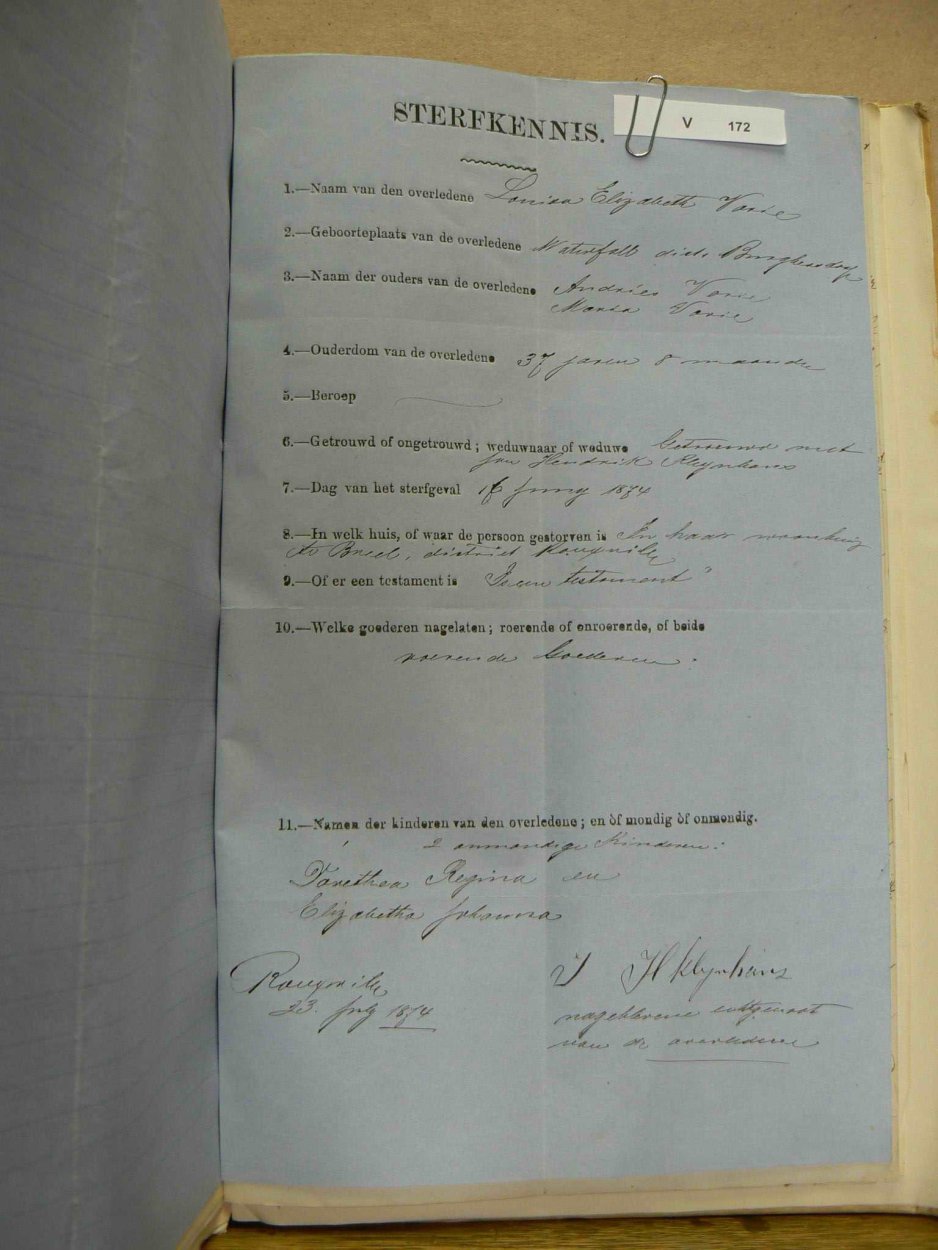 STERFKENNIS.
V 172
1.—Naam van den overledene Louisa Elizabeth Vorie
2.—Geboorteplaats van de overledene Waterfall dist. Burghersdorp
3.—Naam der ouders van de overledene Andries Vorie
Maria Vorie
4.—Ouderdom van de overledene 37 jaren 8 maanden
5.—Beroep
6.—Getrouwd of ongetrouwd; weduwnaar of weduwe Getrouwd met
Jan Hendrik Kleynhans
7.—Dag van het sterfgeval 16 Juny 1874
8.—In welk huis, of waar de persoon gestorven is In haar woonhuis
district Rouxville
9.—Of er een testament is Geen testament
10.—Welke goederen nagelaten; roerende of onroerende, of beide
roerende Goederen.
11.—Namen der kinderen van den overledene; en òf mondig òf onmondig.
2 onmondige Kinderen:
Dorethea Regina en
Elizabetha Johanna
Rouxville
23. July 1874
J H Kleynhans
nageblevene echtgenoot
van de overledene